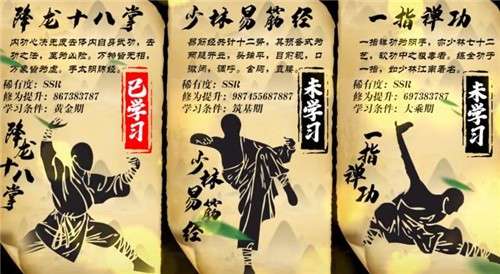 降龙十八掌
内功心法无度去体内自身武功，去
功之法，至为凶险。万种皆无相，
万象皆为虚。手太阴肺经。
稀有度：SSR
修为提升：867383787
学习条件：黄金期
已学习
降龙十八掌
少林易筋经
易筋经共计十二势，其预备式为
两腿开立，头端平，目前视，口
微闭，调呼
稀有度：SSR
修为提升：987455687887
学习条件：筑基期
未学习
少林易筋经
一指禅功
一指禅功为阴手，亦少林七十二
艺，软功中之极毒者。练全功于
一指，如少林江南著名。
稀有度：SSR
修为提升：697383787
学习条件：大乘期
未学习
一指禅功